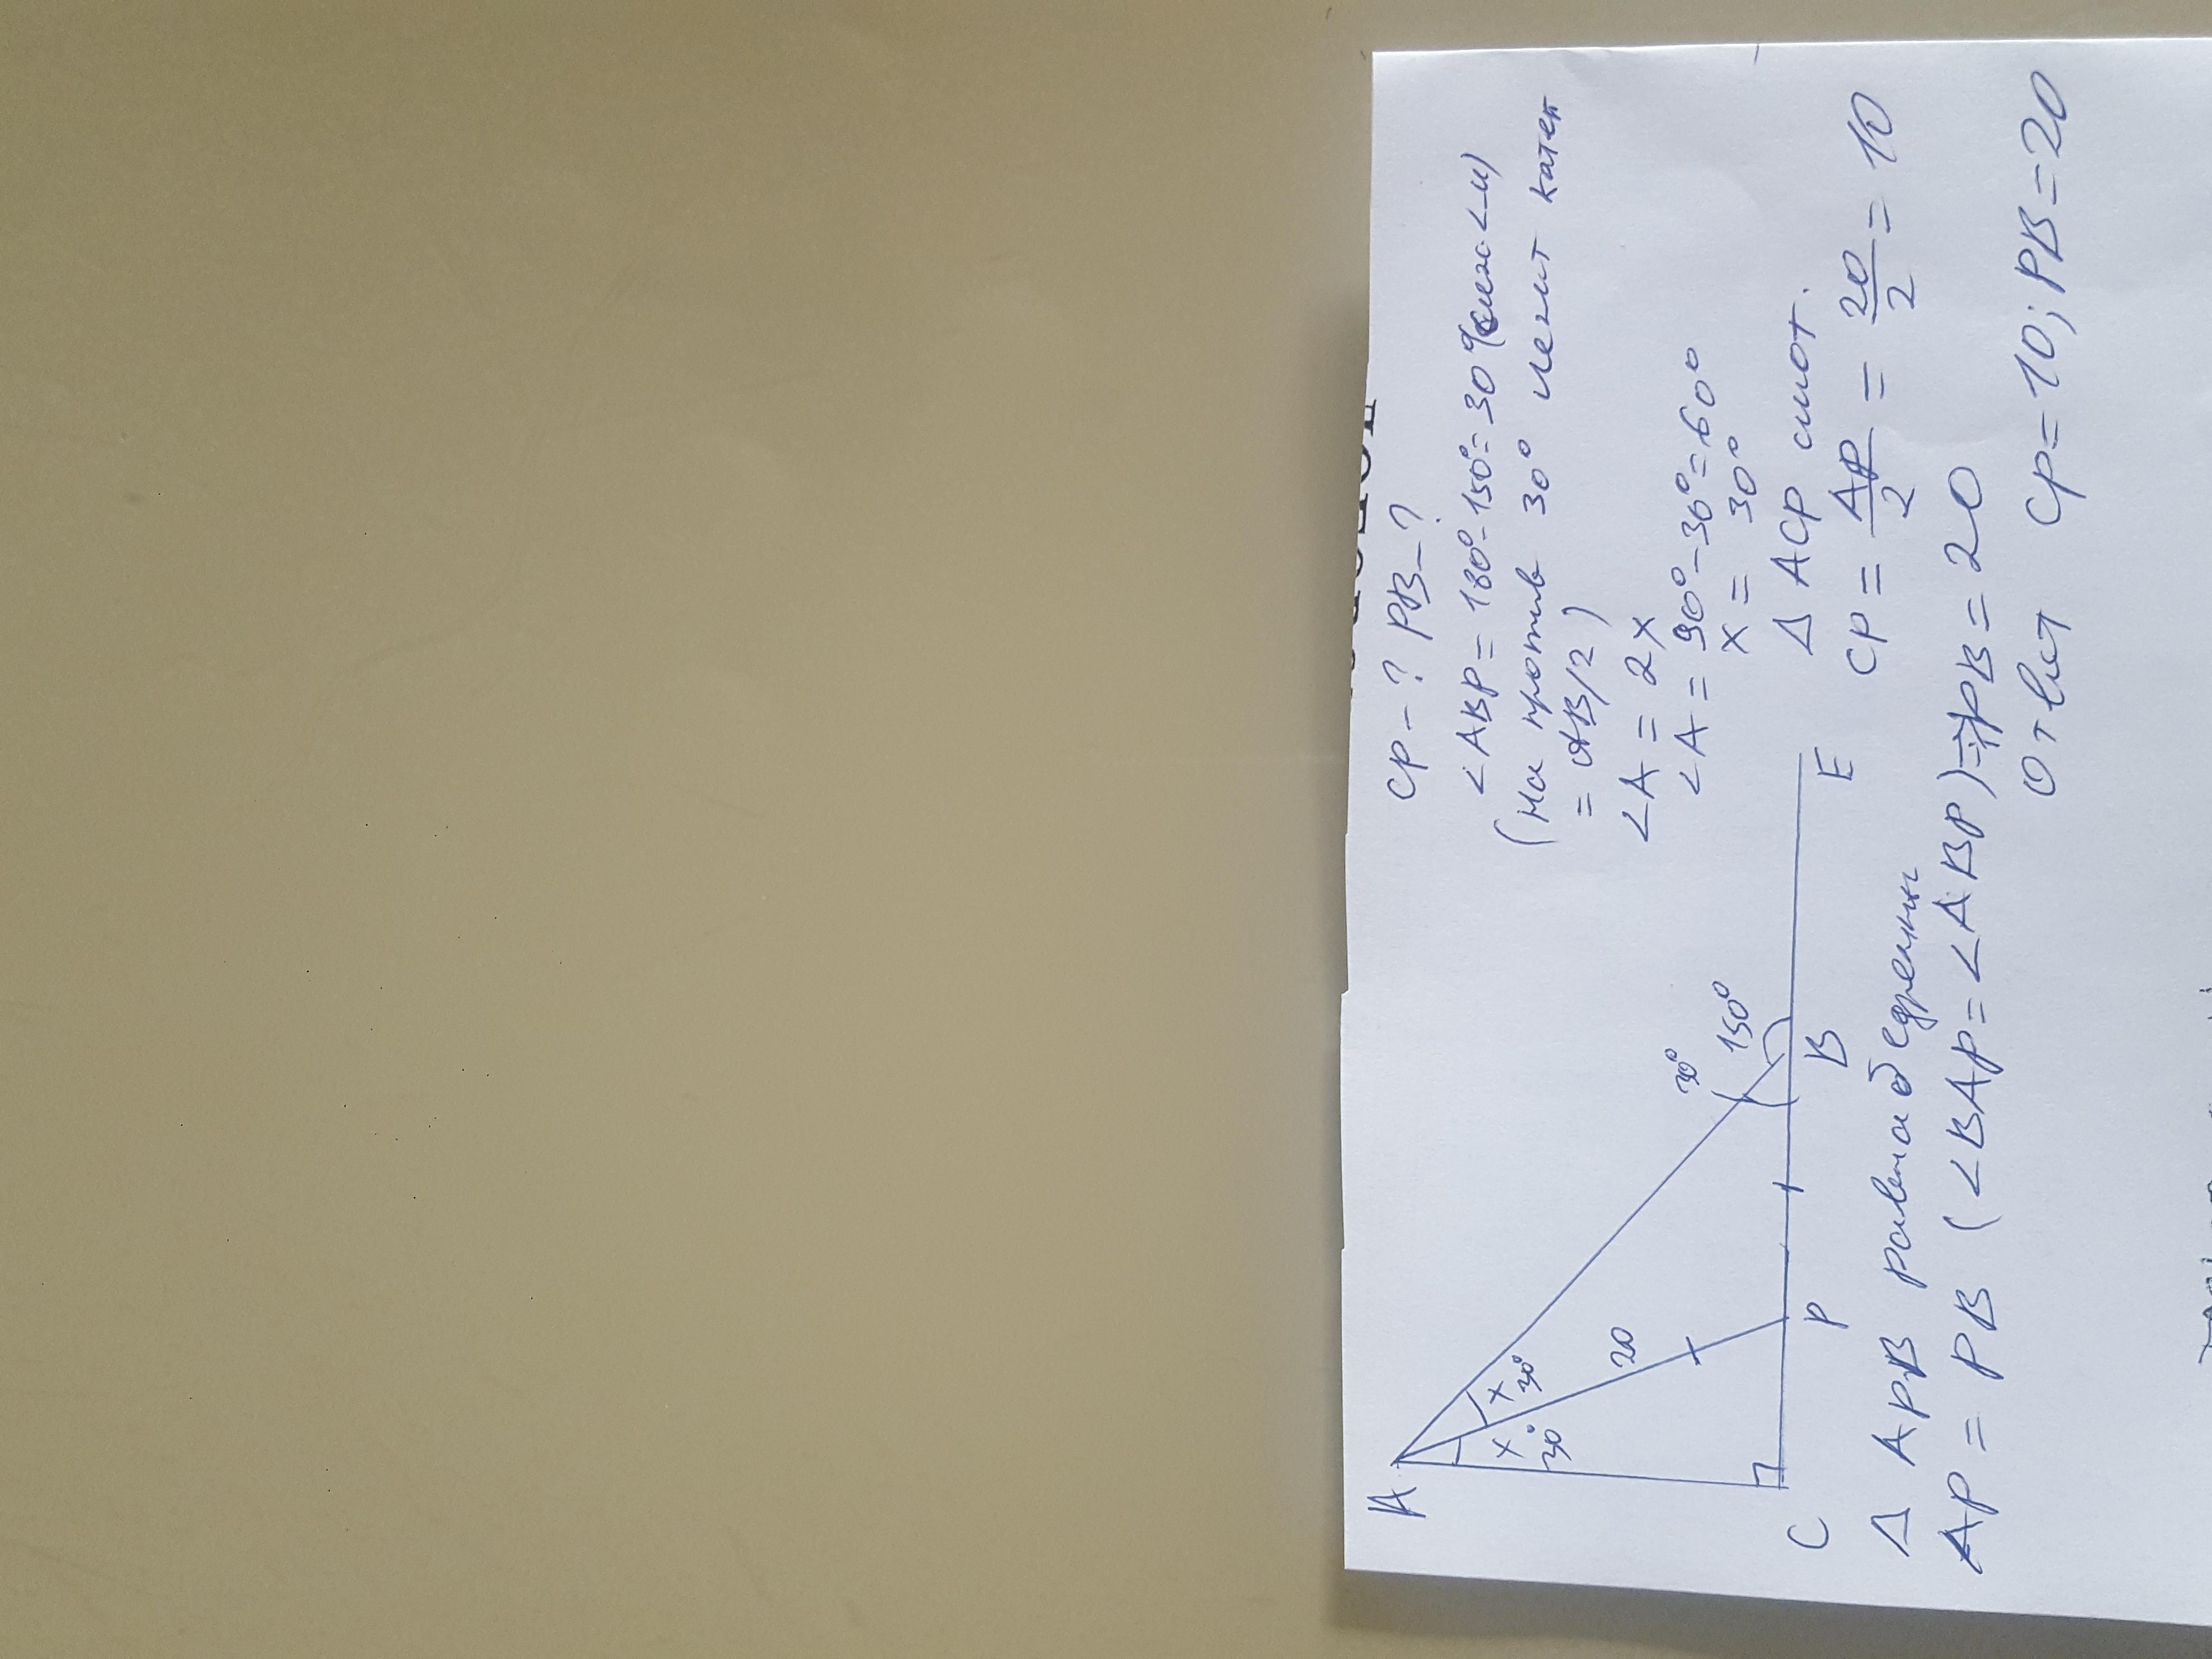 CP - ? PB - ?
∠ABP = 180° - 150° = 30° (смеж ∠-и)
(На против 30° лежит катет
= AB/2)
∠A = 2x
∠A = 90° - 30° = 60°
x = 30°
Δ ACP смот.
CP = AP/2 = 20/2 = 10
A
x x
30° 30°
20
30°
150°
C P B E
Δ APB равнобедренн
AP = PB (∠BAP = ∠ABP) => PB = 20
Ответ CP = 10; PB = 20